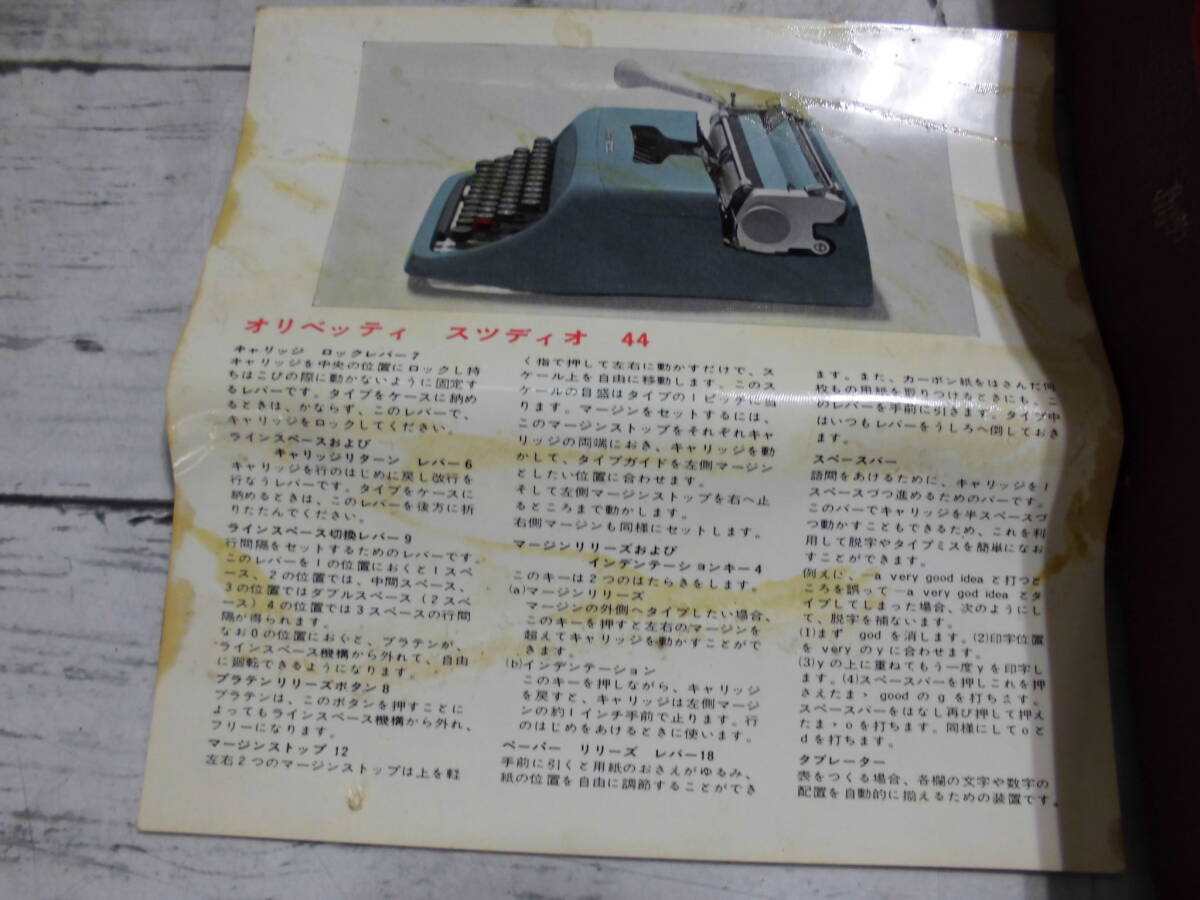 オリベッティ スツディオ 44
キャリッジ ロックレバー7
キャリッジを中央の位置にロックし持
ちはこびの際に動かないように固定す
るレバーです。タイプをケースに納め
るときは、かならず、このレバーで、
キャリッジをロックしてください。
ラインスペースおよび
キャリッジリターン レバー6
キャリッジを行のはじめに戻し改行を
行なうレバーです。タイプをケースに
納めるときは、このレバーを後方に折
りたたんでください。
ラインスペース切換レバー9
行間隔をセットするためのレバーです。
このレバーを1の位置におくと1スペ
ース、2の位置では、中間スペース、
3の位置ではダブルスペース(2スペ
ース)4の位置では3スペースの行間
隔が得られます。
なお0の位置におくと、プラテンが、
ラインスペース機構から外れて、自由
に回転できるようになります。
プラテンリリーズボタン8
プラテンは、このボタンを押すことに
よってもラインスペース機構から外れ、
フリーになります。
マージンストップ 12
左右2つのマージンストップは上を軽
く指で押して左右に動かすだけで、ス
ケール上を自由に移動します。このス
ケールの目盛はタイプの1ピッチに当
ります。マージンをセットするには、
このマージンストップをそれぞれキャ
リッジの両端におき、キャリッジを動
かして、タイプガイドを左側マージン
としたい位置に合わせます。
そして左側マージンストップを右へ止
るところまで動かします。
右側マージンも同様にセットします。
マージンリリーズおよび
インデンテーションキー4
このキーは2つのはたらきをします。
(a)マージンリリーズ
マージンの外側へタイプしたい場合、
このキーを押すと左右のマージンを
超えてキャリッジを動かすことがで
きます。
(b)インデンテーション
このキーを押しながら、キャリッジ
を戻すと、キャリッジは左側マージ
ンの約1インチ手前で止ります。行
のはじめをあけるときに使います。
ペーパー リリーズ レバー18
手前に引くと用紙のおさえがゆるみ、
紙の位置を自由に調節することができ
ます。また、カーボン紙をはさんだ何
枚もの用紙を取りつけるときにも、こ
のレバーを手前に引きます。タイプ中
はいつもレバーをうしろへ倒しておき
ます。
スペースバー
語間をあけるために、キャリッジを1
スペースづつ進めるためのバーです。
このバーでキャリッジを半スペースづ
つ動かすこともできるため、これを利
用して脱字やタイプミスを簡単になお
すことができます。
例えば、 a very good idea と打つと
ころを誤って—a very god idea とタ
イプしてしまった場合、次のようにし
て、脱字を補ないます。
(1)まず god を消します。(2)印字位置
を very のyに合わせます。
(3)yの上に重ねてもう一度yを印字し
ます。(4)スペースバーを押しこれを押
さえたまゝ goodのgを打ちます。
スペースバーをはなし再び押して押え
たまゝoを打ちます。同様にしてoと
dを打ちます。
タブレーター
表をつくる場合、各欄の文字や数字の
配置を自動的に揃えるための装置です。